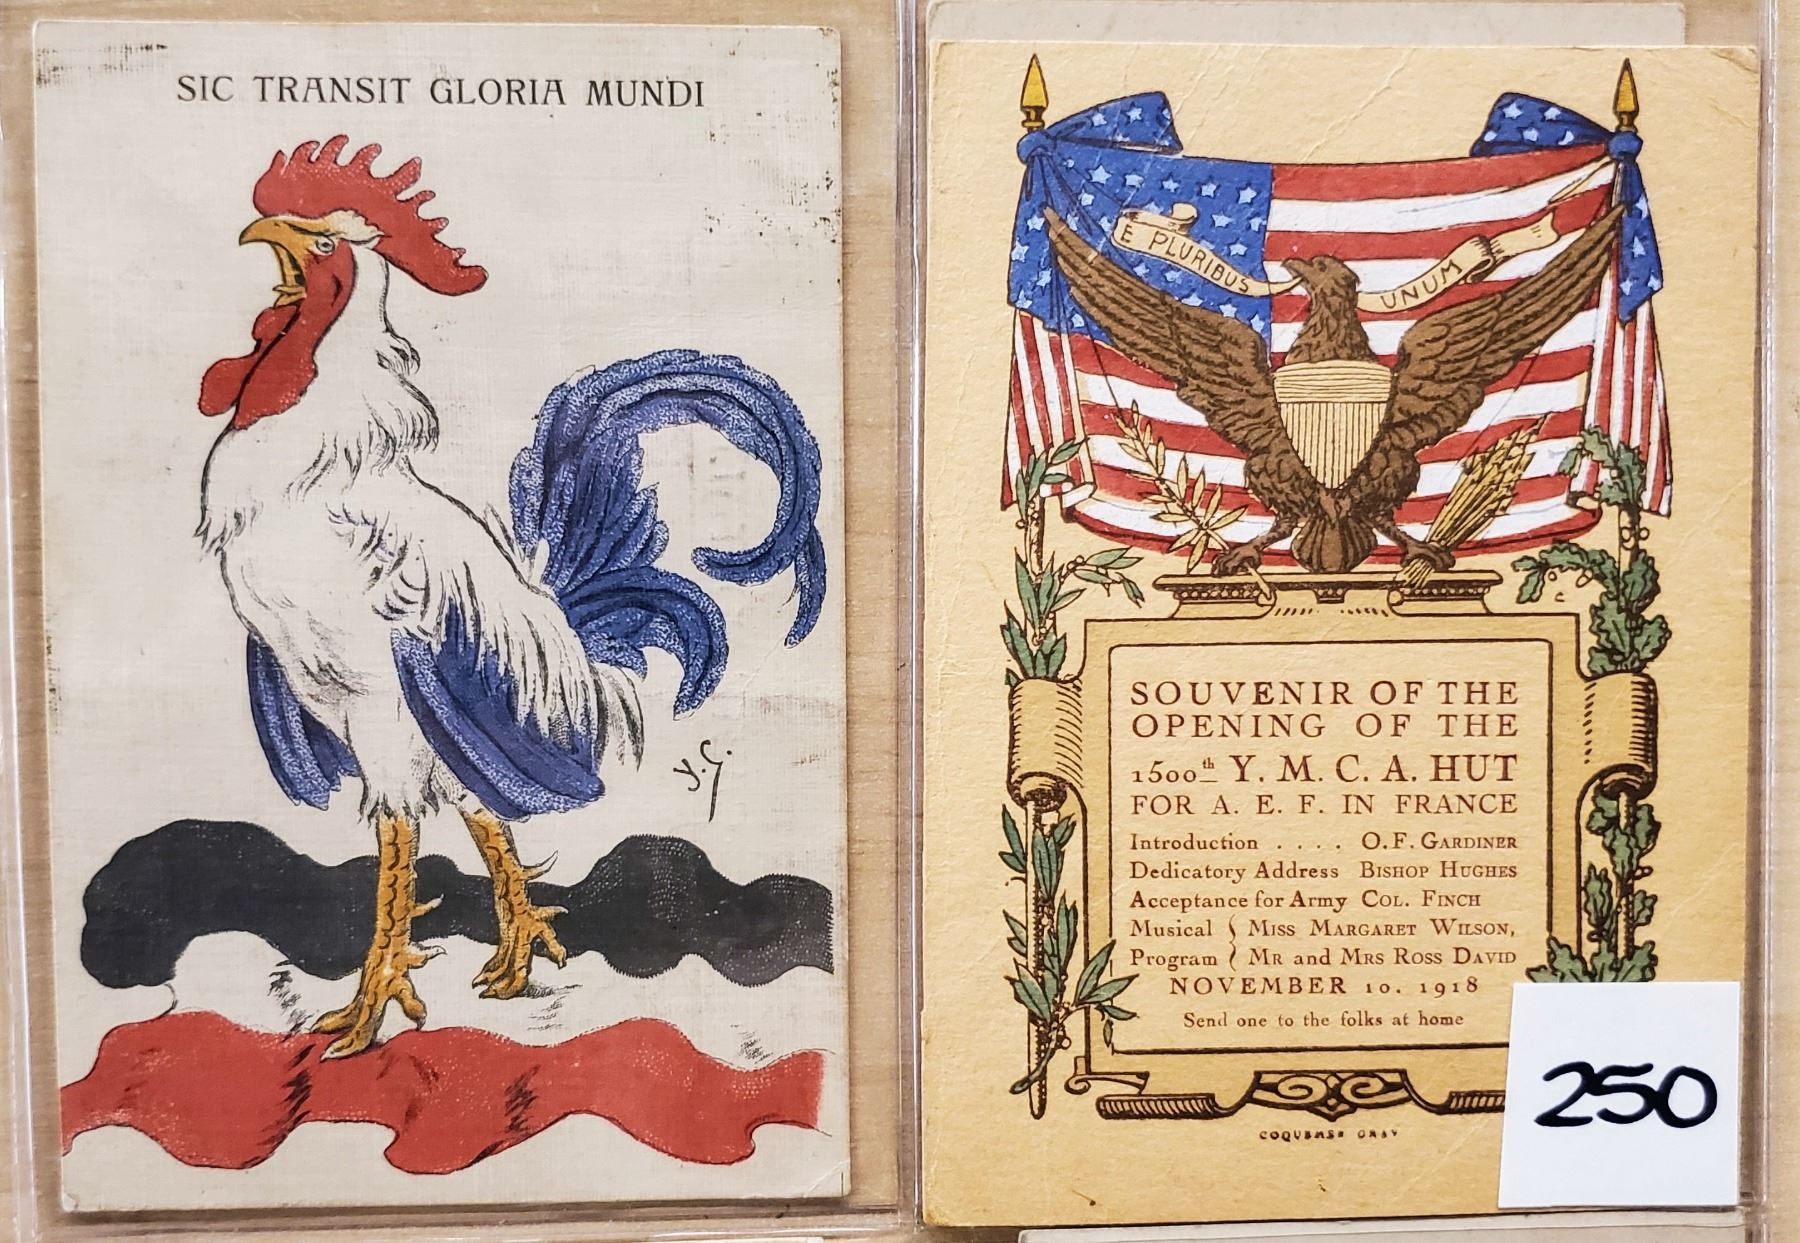 SIC TRANSIT GLORIA MUNDI
y.G.
E PLURIBUS UNUM
SOUVENIR OF THE
OPENING OF THE
1500th Y. M. C. A. HUT
FOR A. E. F. IN FRANCE
Introduction .... O. F. GARDINER
Dedicatory Address BISHOP HUGHES
Acceptance for Army COL. FINCH
Musical { MISS MARGARET WILSON,
Program { MR and MRS ROSS DAVID
NOVEMBER 10. 1918
Send one to the folks at home
250